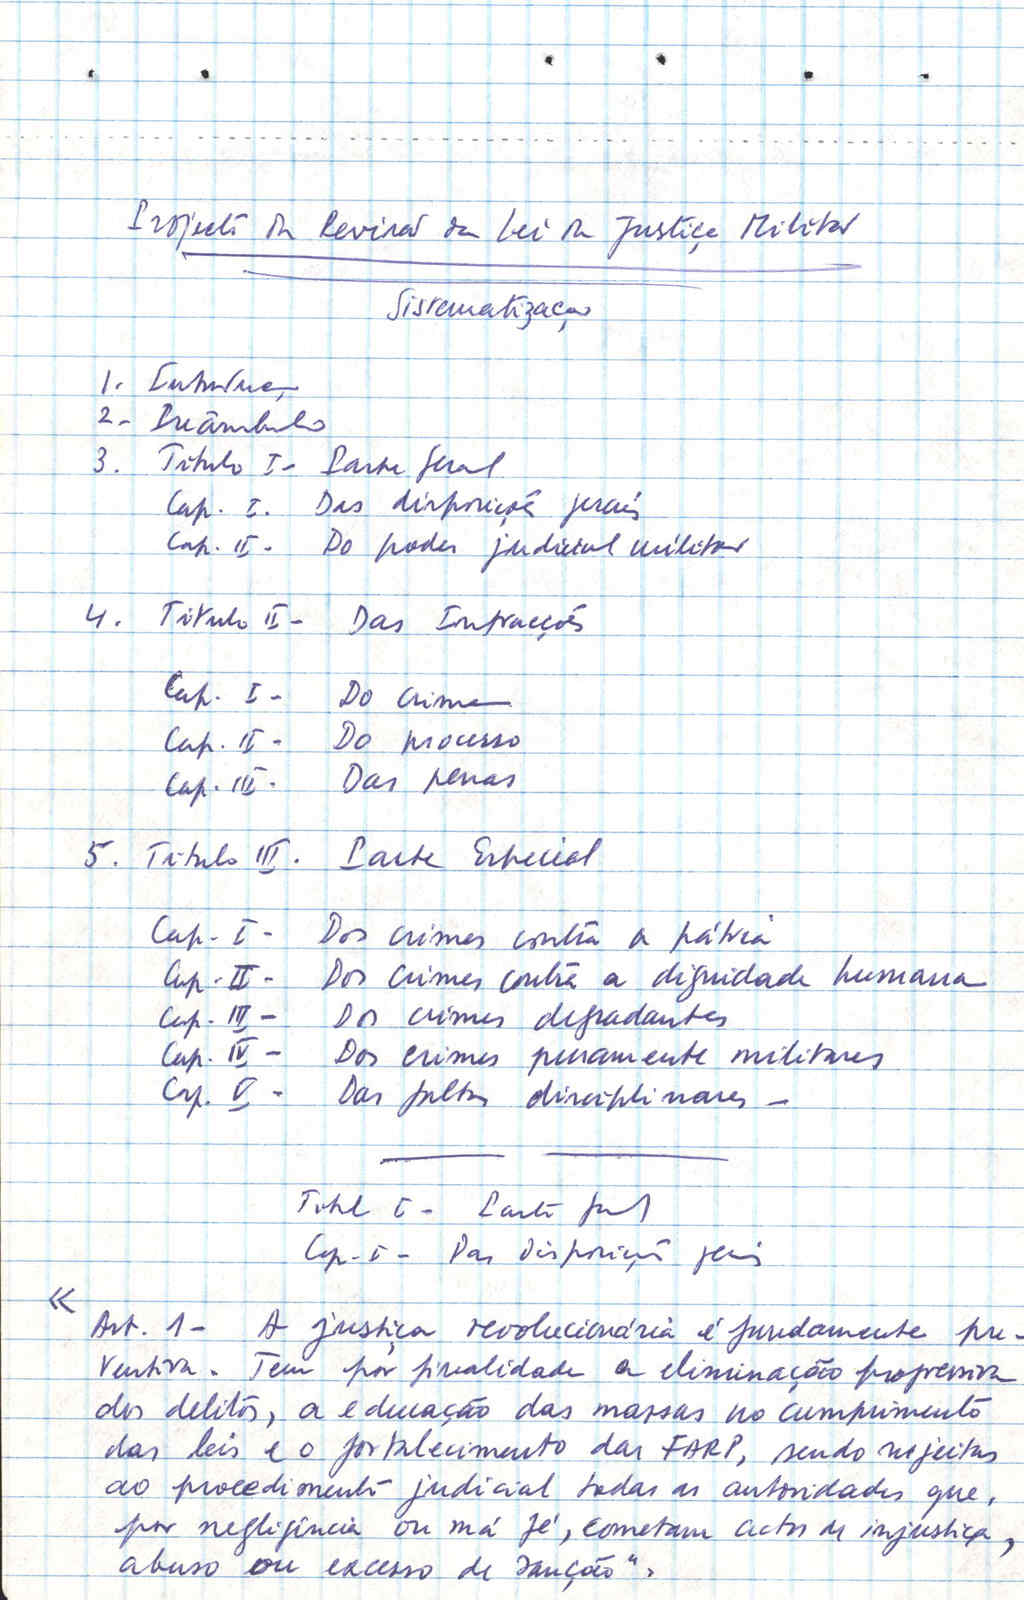 Projecto de Revisão da Lei da Justiça Militar
Sistematização
1. Introdução
2- Preâmbulo
3. Título I- Parte Geral
Cap. I. Das disposições gerais
Cap. II- Do poder judicial militar
4. Título II- Das Infracções
Cap. I- Do crime
Cap. II- Do processo
Cap. III- Das penas
5. Título III. Parte Especial
Cap. I- Dos crimes contra a pátria
Cap. II- Dos crimes contra a dignidade humana
Cap. III- Dos crimes degradantes
Cap. IV- Dos crimes puramente militares
Cap. V- Das faltas disciplinares-
Título I- Parte geral
Cap. I- Das Disposições gerais
«
Art. 1- A justiça revolucionária é fundamente pre-
ventiva. Tem por finalidade a eliminação progressiva
dos delitos, a educação das massas no cumprimento
das leis e o fortalecimento das FARP, sendo sujeitas
ao procedimento judicial todas as autoridades que,
por negligência ou má fé, cometam actos de injustiça,
abuso ou excesso de sanção".